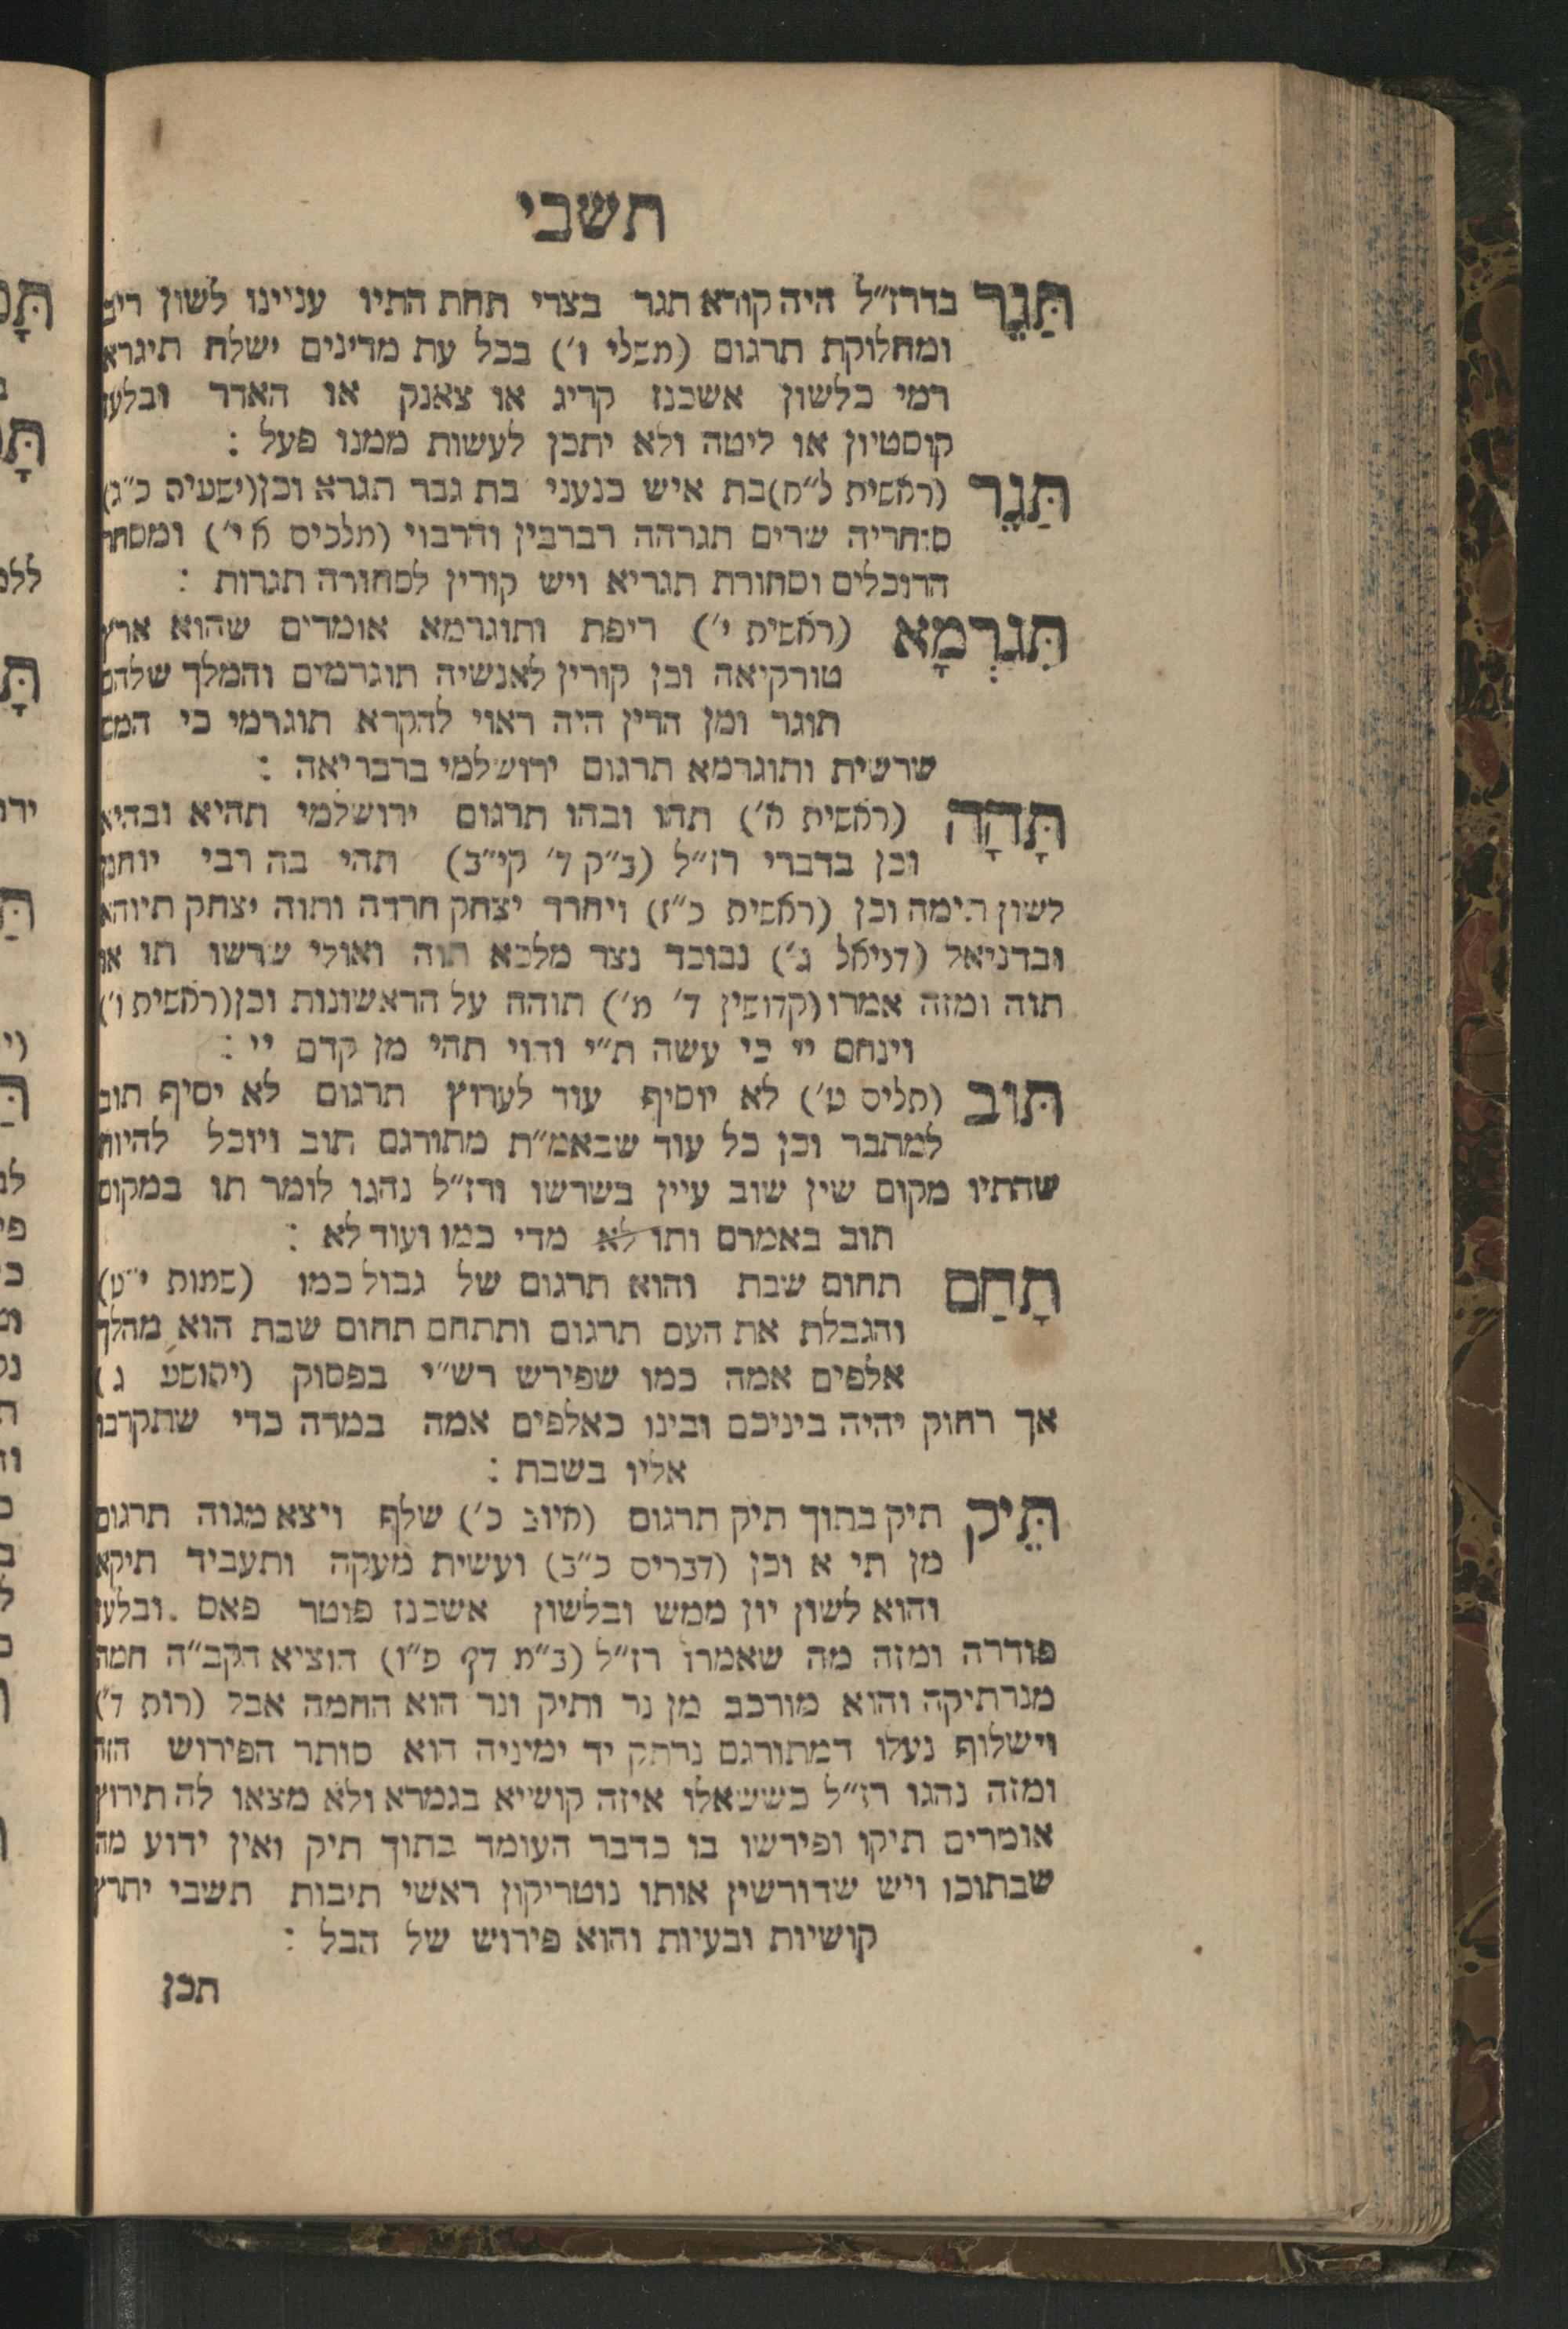 תשבי
תַּגָר בדרז״ל היה קורא תגר בצרי תחת התיו עניינו לשון ריב
ומחלוקת תרגום (משלי ו׳) בכל עת מדינים ישלח תיגרא
רמי בלשון אשכנז קריג או צאנק או האדר ובלעז
קוסטיון או ליטה ולא יתכן לעשות ממנו פעל :
תַּגָר (ראשית ל״ח) בת איש כנעני בת גבר תגרא וכן (ישעיה כ״ג)
סחריה שרים תגרהה רברבין והרבוי (מלכים א י׳) ומסחר
הרוכלים וסחורת תגריא ויש קורין לסחורה תגרות :
תִּגַרְמָא (ראשית י׳) ריפת ותוגרמא אומרים שהוא ארץ
טורקיאה וכן קורין לאנשיה תוגרמים והמלך שלהם
תוגר ומן הדין היה ראוי להקרא תוגרמי כי המם
שרשית ותוגרמא תרגום ירושלמי ברבריאה :
תָּהָה (ראשית א׳) תהו ובהו תרגום ירושלמי תהיא ובהיא
וכן בדברי רז״ל (ב״ק ד׳ קי״ב) תהי בה רבי יוחנן
לשון תימה וכן (ראשית כ״ז) ויחרד יצחק חרדה ותוה יצחק תיוהא
ובדניאל (דניאל ג׳) נבוכד נצר מלכא תוה ואולי שרשו תו או
תוה ומזה אמרו (קדושין ד׳ מ׳) תוהה על הראשונות וכן (ראשית ו׳)
וינחם יי כי עשה ת״י והוי תהי מן קדם יי :
תּוּב (תלים ט׳) לא יוסיף עוד לערוץ תרגום לא יסיף תוב
למתבר וכן כל עוד שבאמ״ת מתורגם תוב ויוכל להיות
שהתיו מקום שין שוב עיין בשרשו ורז״ל נהגו לומר תו במקום
תוב באמרם ותו לא מדי כמו ועוד לא :
תָחַם תחום שבת והוא תרגום של גבול כמו (שמות י״ט)
והגבלת את העם תרגום ותתחם תחום שבת הוא מהלך
אלפים אמה כמו שפירש רש״י בפסוק (יהושע ג)
אך רחוק יהיה ביניכם ובינו כאלפים אמה במדה כדי שתקרבו
אליו בשבת :
תֵּיק תיק בתוך תיק תרגום (איוב כ׳) שלף ויצא מגוה תרגום
מן תי א וכן (דברים כ״ב) ועשית מעקה ותעביד תיקא
והוא לשון יון ממש ובלשון אשכנז פוטר פאס . ובלעז
פודרה ומזה מה שאמרו רז״ל (ב״מ דף פ״ו) הוציא הקב״ה חמה
מנרתיקה והוא מורכב מן נר ותיק ונר הוא החמה אבל (רות ד׳)
וישלוף נעלו דמתורגם נרתק יד ימיניה הוא סותר הפירוש הזה
ומזה נהגו רז״ל כששאלו איזה קושיא בגמרא ולא מצאו לה תירוץ
אומרים תיקו ופירשו בו כדבר העומד בתוך תיק ואין ידוע מה
שבתוכו ויש שדורשין אותו נוטריקון ראשי תיבות תשבי יתרץ
קושיות ובעיות והוא פירוש של הבל :
תכן